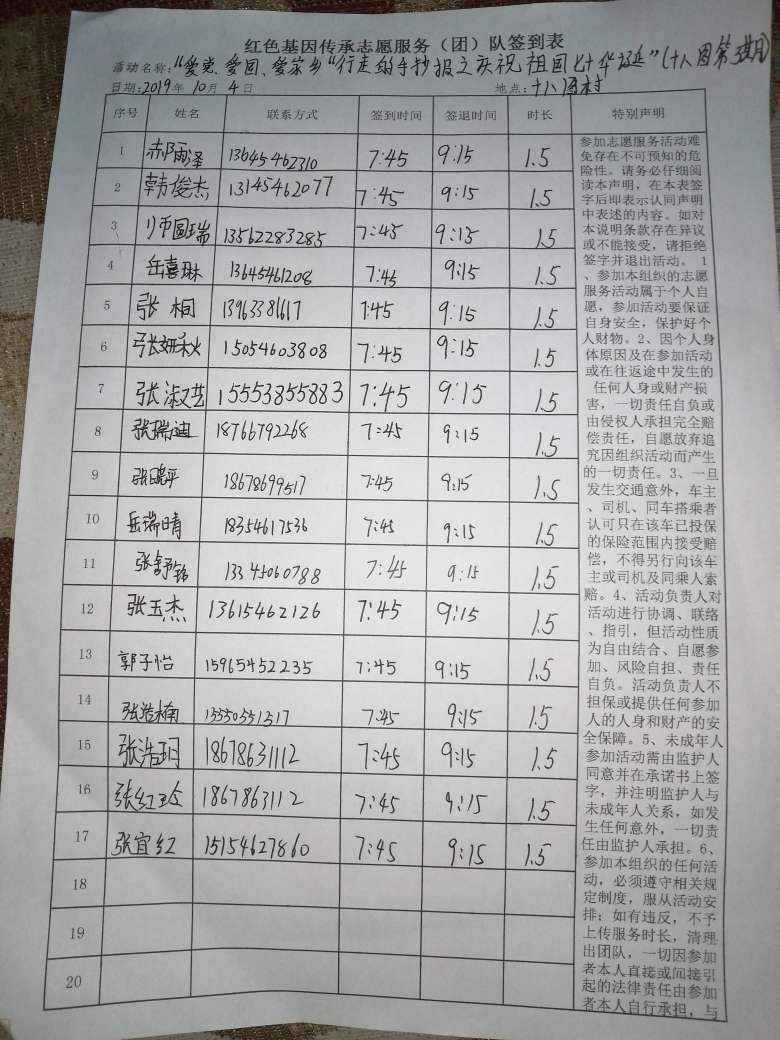 红色基因传承志愿服务（团）队签到表
活动名称:“爱党、爱国、爱家乡”行走的手抄报之庆祝祖国七十华诞”(十八图第
日期:2019年10月4日 地点:十八图村
序号 姓名 联系方式 签到时间 签退时间 时长 特别声明
1 郝雨泽 13645462310 7:45 9:15 1.5
2 韩俊杰 13145462077 7:45 9:15 1.5
3 师圆瑞 13562283285 7:45 9:15 1.5
4 岳喜琳 13645461208 7:45 9:15 1.5
5 张桐 13963381617 7:45 9:15 1.5
6 张妍秋 15054603808 7:45 9:15 1.5
7 张淑艺 15553855883 7:45 9:15 1.5
8 张瑞迪 18766792268 7:45 9:15 1.5
9 张晓平 18678699517 7:45 9:15 1.5
10 岳瑞晴 18354617536 7:45 9:15 1.5
11 张舒铭 13345060788 7:45 9:15 1.5
12 张玉杰 13615462126 7:45 9:15 1.5
13 郭子怡 15965452235 7:45 9:15 1.5
14 张浩楠 15550551317 7:45 9:15 1.5
15 张浩玥 18678631112 7:45 9:15 1.5
16 张红玲 1867863112 7:45 9:15 1.5
17 张宜红 15154627860 7:45 9:15 1.5
18
19
20
参加志愿服务活动难
免存在不可预知的危
险性。请务必仔细阅
读本声明，在本表签
字后即表示认同声明
中表述的内容。如对
本说明条款存在异议
或不能接受，请拒绝
签字并退出活动。 1
、参加本组织的志愿
服务活动属于个人自
愿，参加活动要保证
自身安全，保护好个
人财物。2、因个人身
体原因及在参加活动
或在往返途中发生的
任何人身或财产损
害，一切责任自负或
由侵权人承担完全赔
偿责任，自愿放弃追
究因组织活动而产生
的一切责任。3、一旦
发生交通意外，车主
、司机、同车搭乘者
认可只在该车已投保
的保险范围内接受赔
偿，不得另行向该车
主或司机及同乘人索
赔。4、活动负责人对
活动进行协调、联络
、指引，但活动性质
为自由结合、自愿参
加、风险自担、责任
自负。活动负责人不
担保或提供任何参加
人的人身和财产的安
全保障。5、未成年人
参加活动需由监护人
同意并在承诺书上签
字，并注明监护人与
未成年人关系，如发
生任何意外，一切责
任由监护人承担。6、
参加本组织的任何活
动，必须遵守相关规
定制度，服从活动安
排；如有违反，不予
上传服务时长，清理
出团队，一切因参加
者本人直接或间接引
起的法律责任由参加
者本人自行承担，与